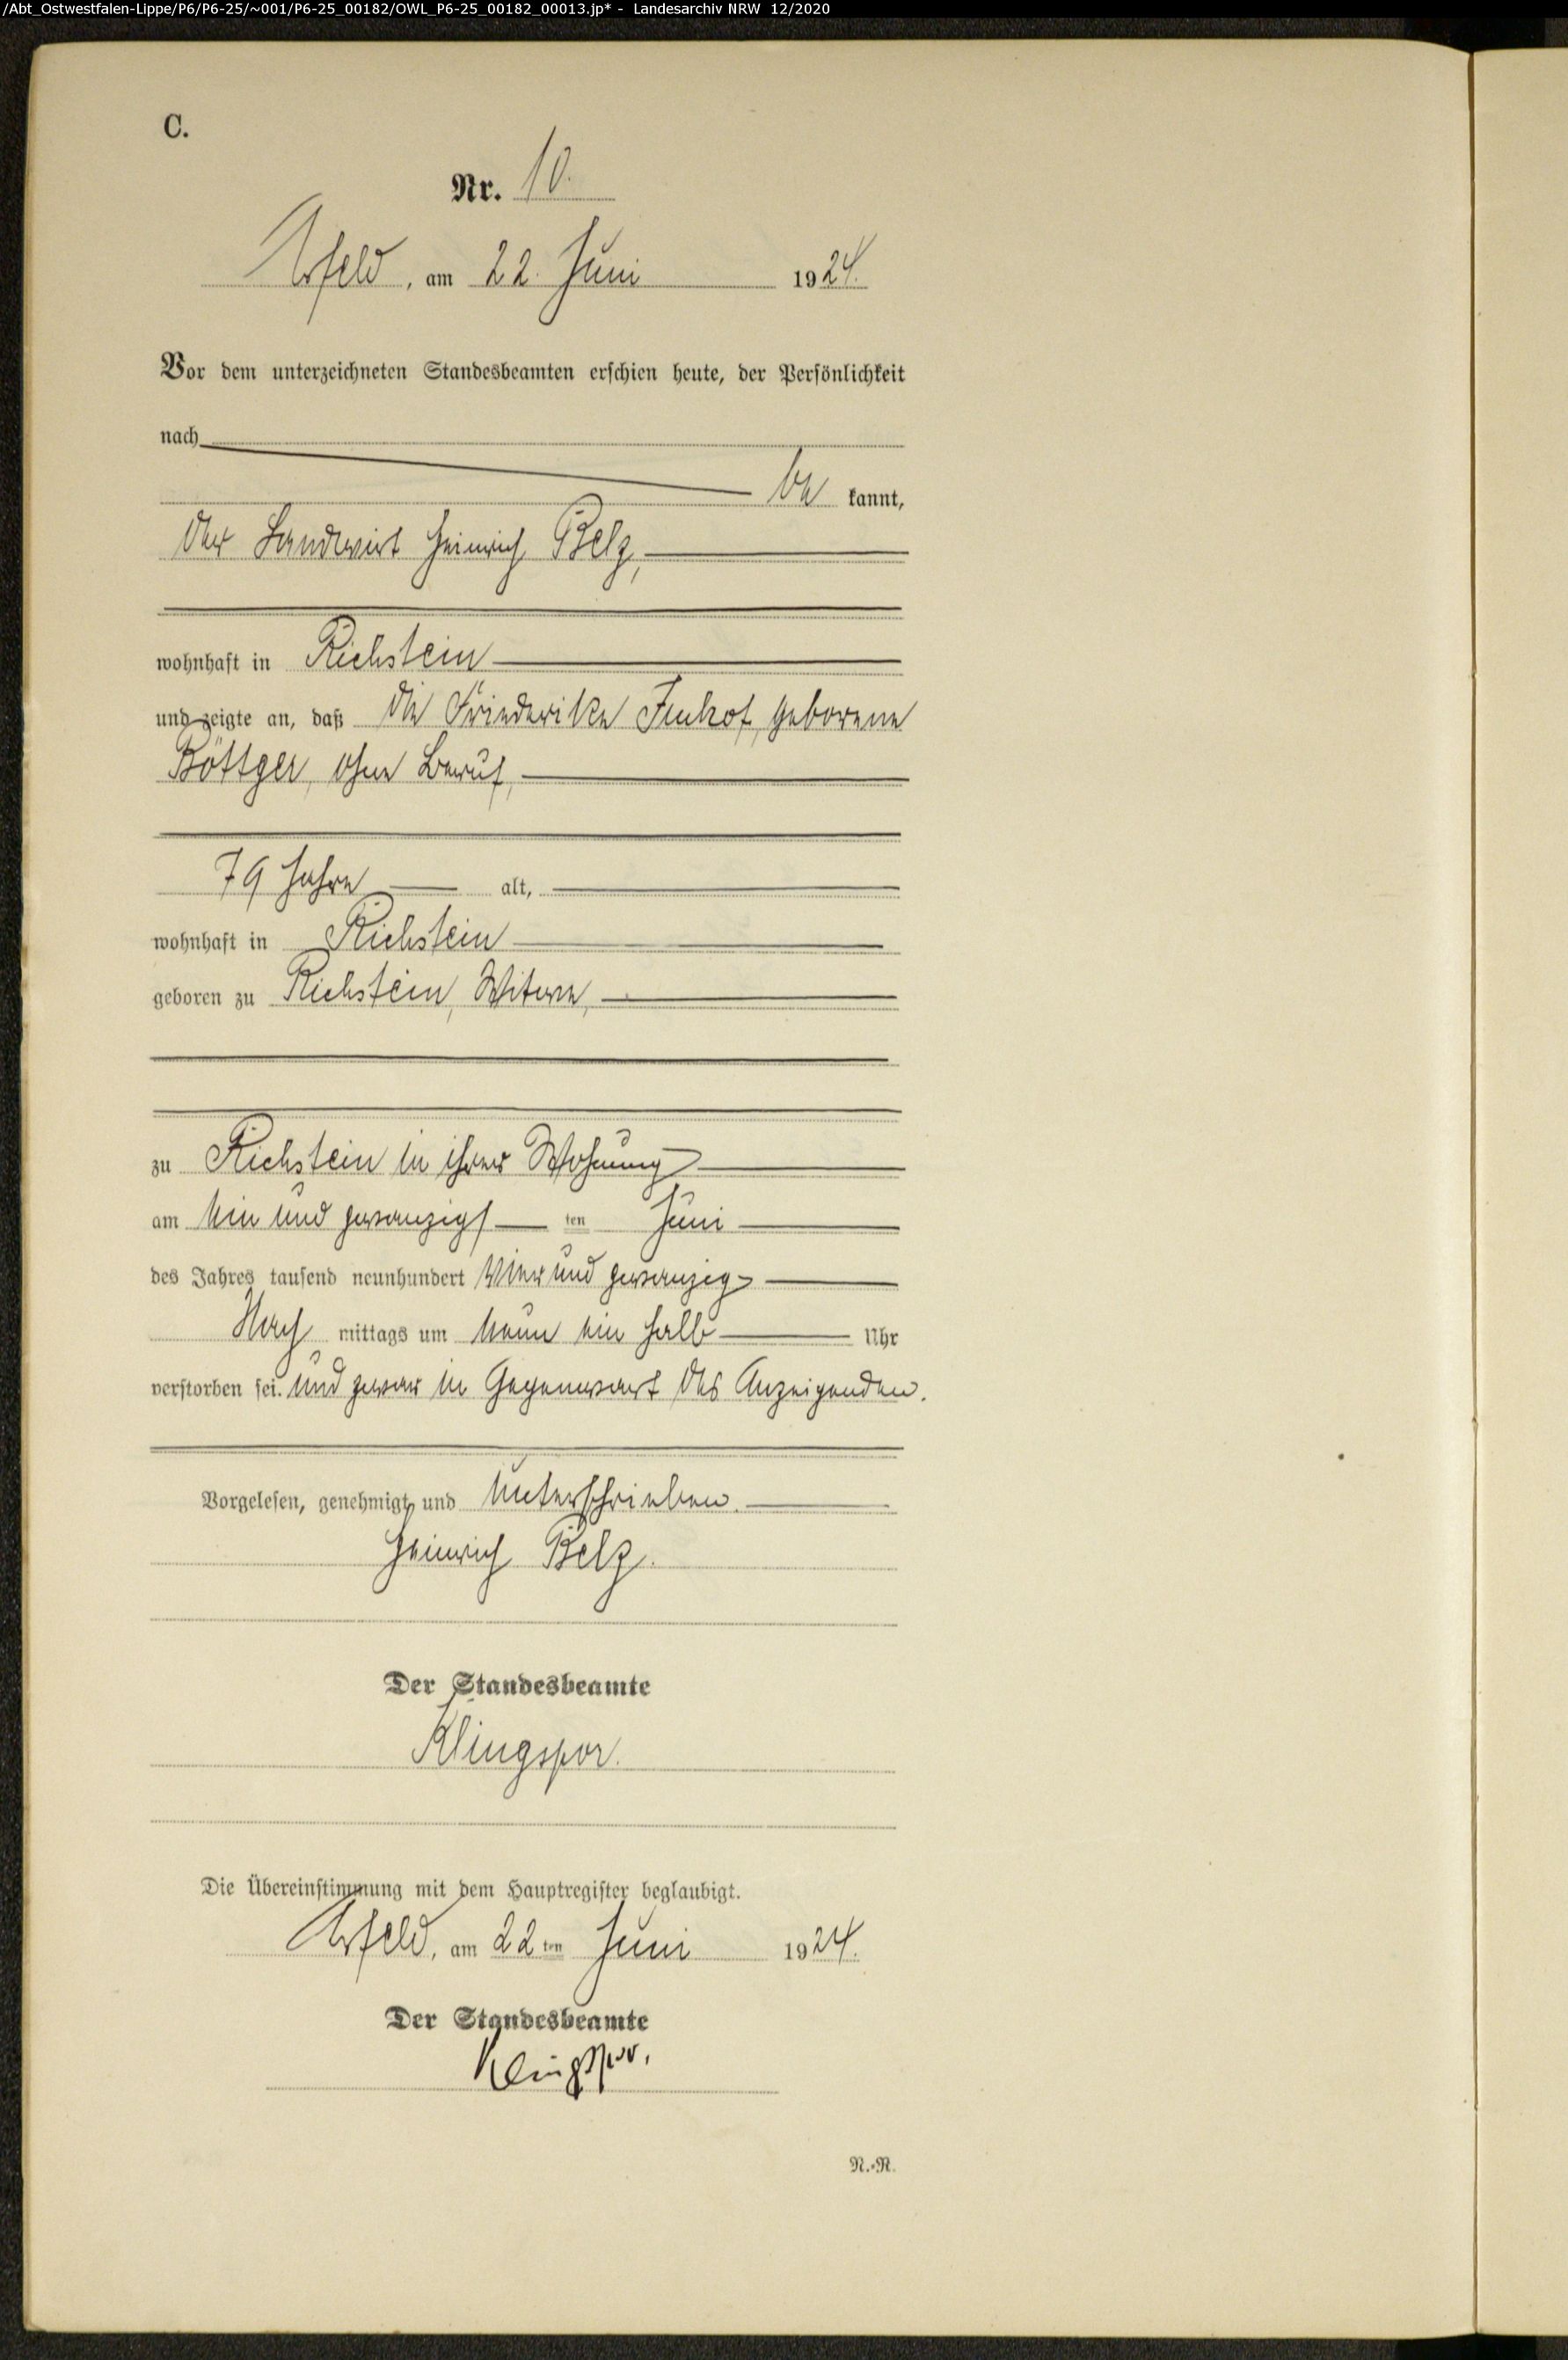 /Abt_Ostwestfalen-Lippe/P6/P6-25/~001/P6-25_00182/OWL_P6-25_00182_00013.jp* - Landesarchiv NRW 12/2020
C.
Nr. 10.
Arfeld, am 22. Juni 1924.
Vor dem unterzeichneten Standesbeamten erschien heute, der Persönlichkeit
nach
be kannt,
der Landwirt Heinrich Belz,
wohnhaft in Richstein
und zeigte an, daß die Friederike Imhof, geborene
Böttger, ohne Beruf,
79 Jahre alt,
wohnhaft in Richstein
geboren zu Richstein, Witwe,
zu Richstein in ihrer Wohnung
am ein und zwanzigs ten Juni
des Jahres tausend neunhundert vier und zwanzig
Nach mittags um neun ein halb Uhr
verstorben sei. und zwar in Gegenwart des Anzeigenden.
Vorgelesen, genehmigt und unterschrieben.
Heinrich Belz.
Der Standesbeamte
Klingspor.
Die Übereinstimmung mit dem Hauptregister beglaubigt.
Arfeld, am 22 ten Juni 1924.
Der Standesbeamte
Klingspor.
N.-N.